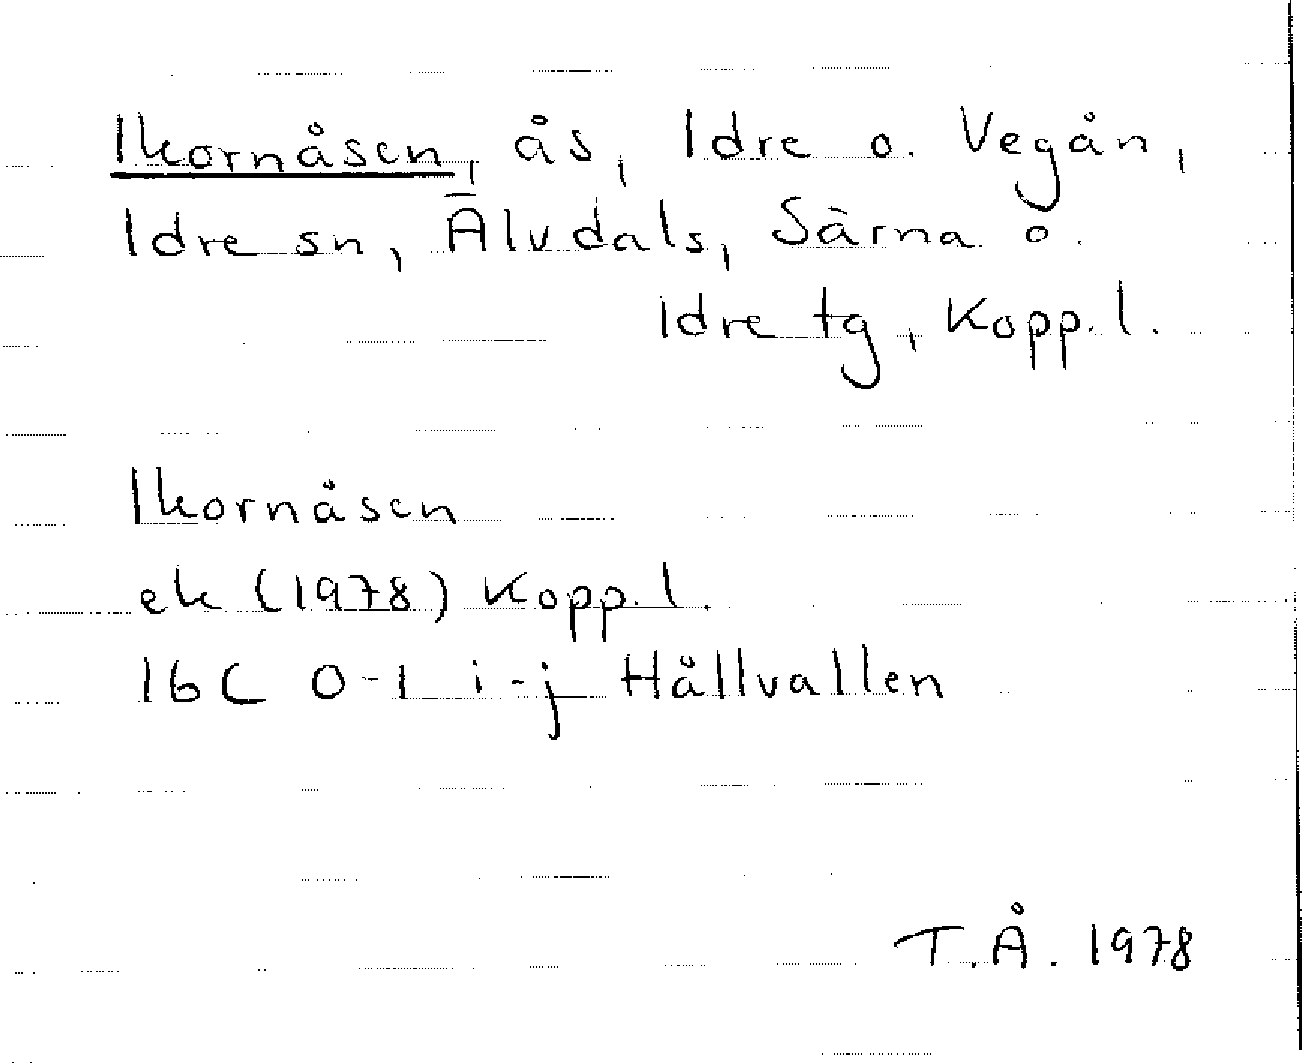 Ikornåsen, ås, Idre o. Vegån,
Idre sn, Älvdals, Särna o.
Idre tg, Kopp. l.
Ikornåsen
ek (1978) Kopp. l.
16C 0-1 i-j Hållvallen
T.Å. 1978